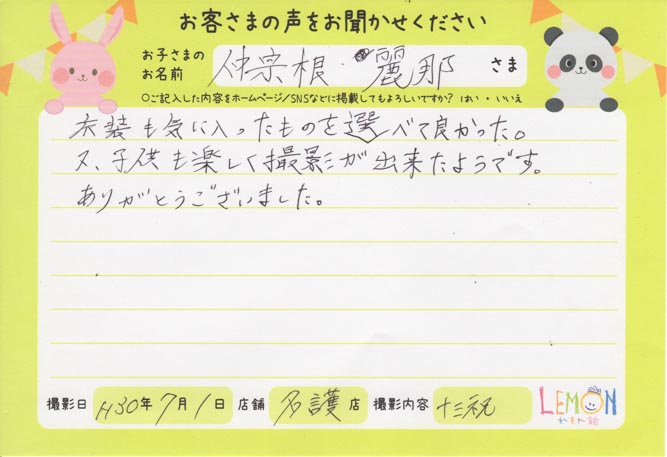 お客さまの声をお聞かせください
お子さまの
お名前 仲宗根・麗那 さま
○ご記入した内容をホームページ/SNSなどに掲載してもよろしいですか? はい・いいえ
衣装も気に入ったものを選べて良かった。
又、子供も楽しく撮影が出来たようです。
ありがとうございました。
撮影日 H30年7月1日 店舗 名護店 撮影内容 十三祝
LEMON
れもん館